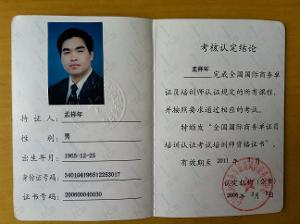 孟祥年
持证人：
性别：男
出生年月：1965-12-25
身份证号码：
证书号码：200600040030
考核认定结论
孟祥年 完成全国国际商务单
证员培训师认证规定的所有课程，
并按照要求通过相应的考试。
特颁发“全国国际商务单证员
培训认证考试培训师资格证书”，
有效期至 2011 年 1 月
认定机构（公章）